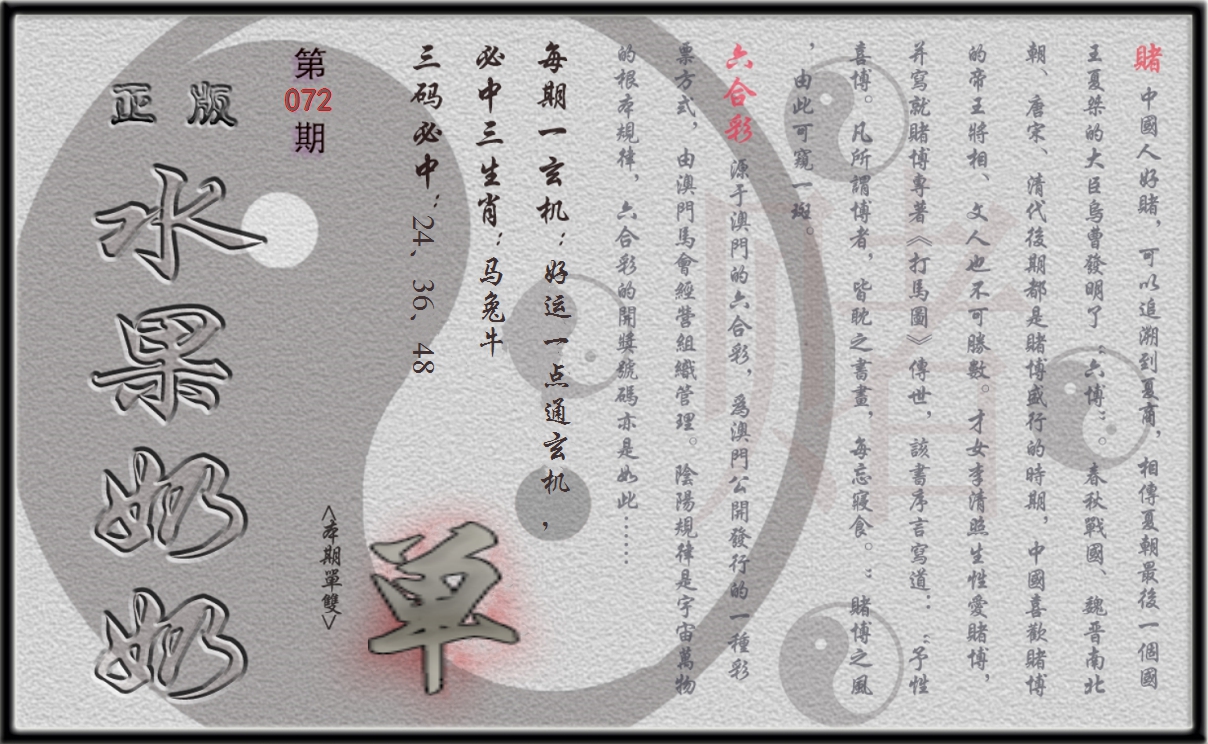 賭 中國人好賭，可以追溯到夏商，相傳夏朝最後一個國
王夏桀的大臣烏曹發明了“六博”。春秋戰國、魏晉南北
朝、唐宋、清代後期都是賭博盛行的時期，中國喜歡賭博
的帝王將相、文人也不可勝數。才女李清照生性愛賭博，
并寫就賭博專著《打馬圖》傳世，該書序言寫道：“予性
喜博。凡所謂博者，皆耽之書畫，每忘寢食。：賭博之風
，由此可窺一斑。
六合彩 源于澳門的六合彩，爲澳門公開發行的一種彩
票方式，由澳門馬會經營組織管理。陰陽規律是宇宙萬物
的根本規律，六合彩的開獎號碼亦是如此……
每期一玄机：好运一点通玄机，
必中三生肖：马兔牛
三码必中：24、36、48
单
第
072
期
<本期單雙>
正版
水果奶奶
賭